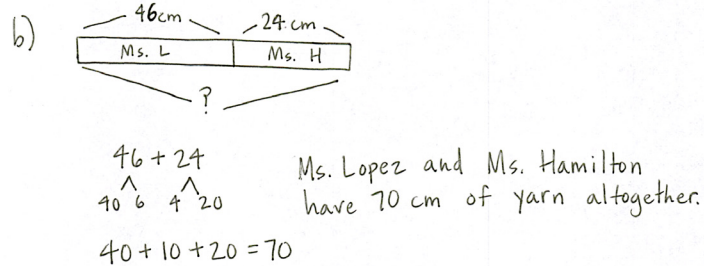 b)
46cm 24 cm
Ms. L Ms. H
?
46 + 24
40 6 4 20
40 + 10 + 20 = 70
Ms. Lopez and Ms. Hamilton
have 70 cm of yarn altogether.